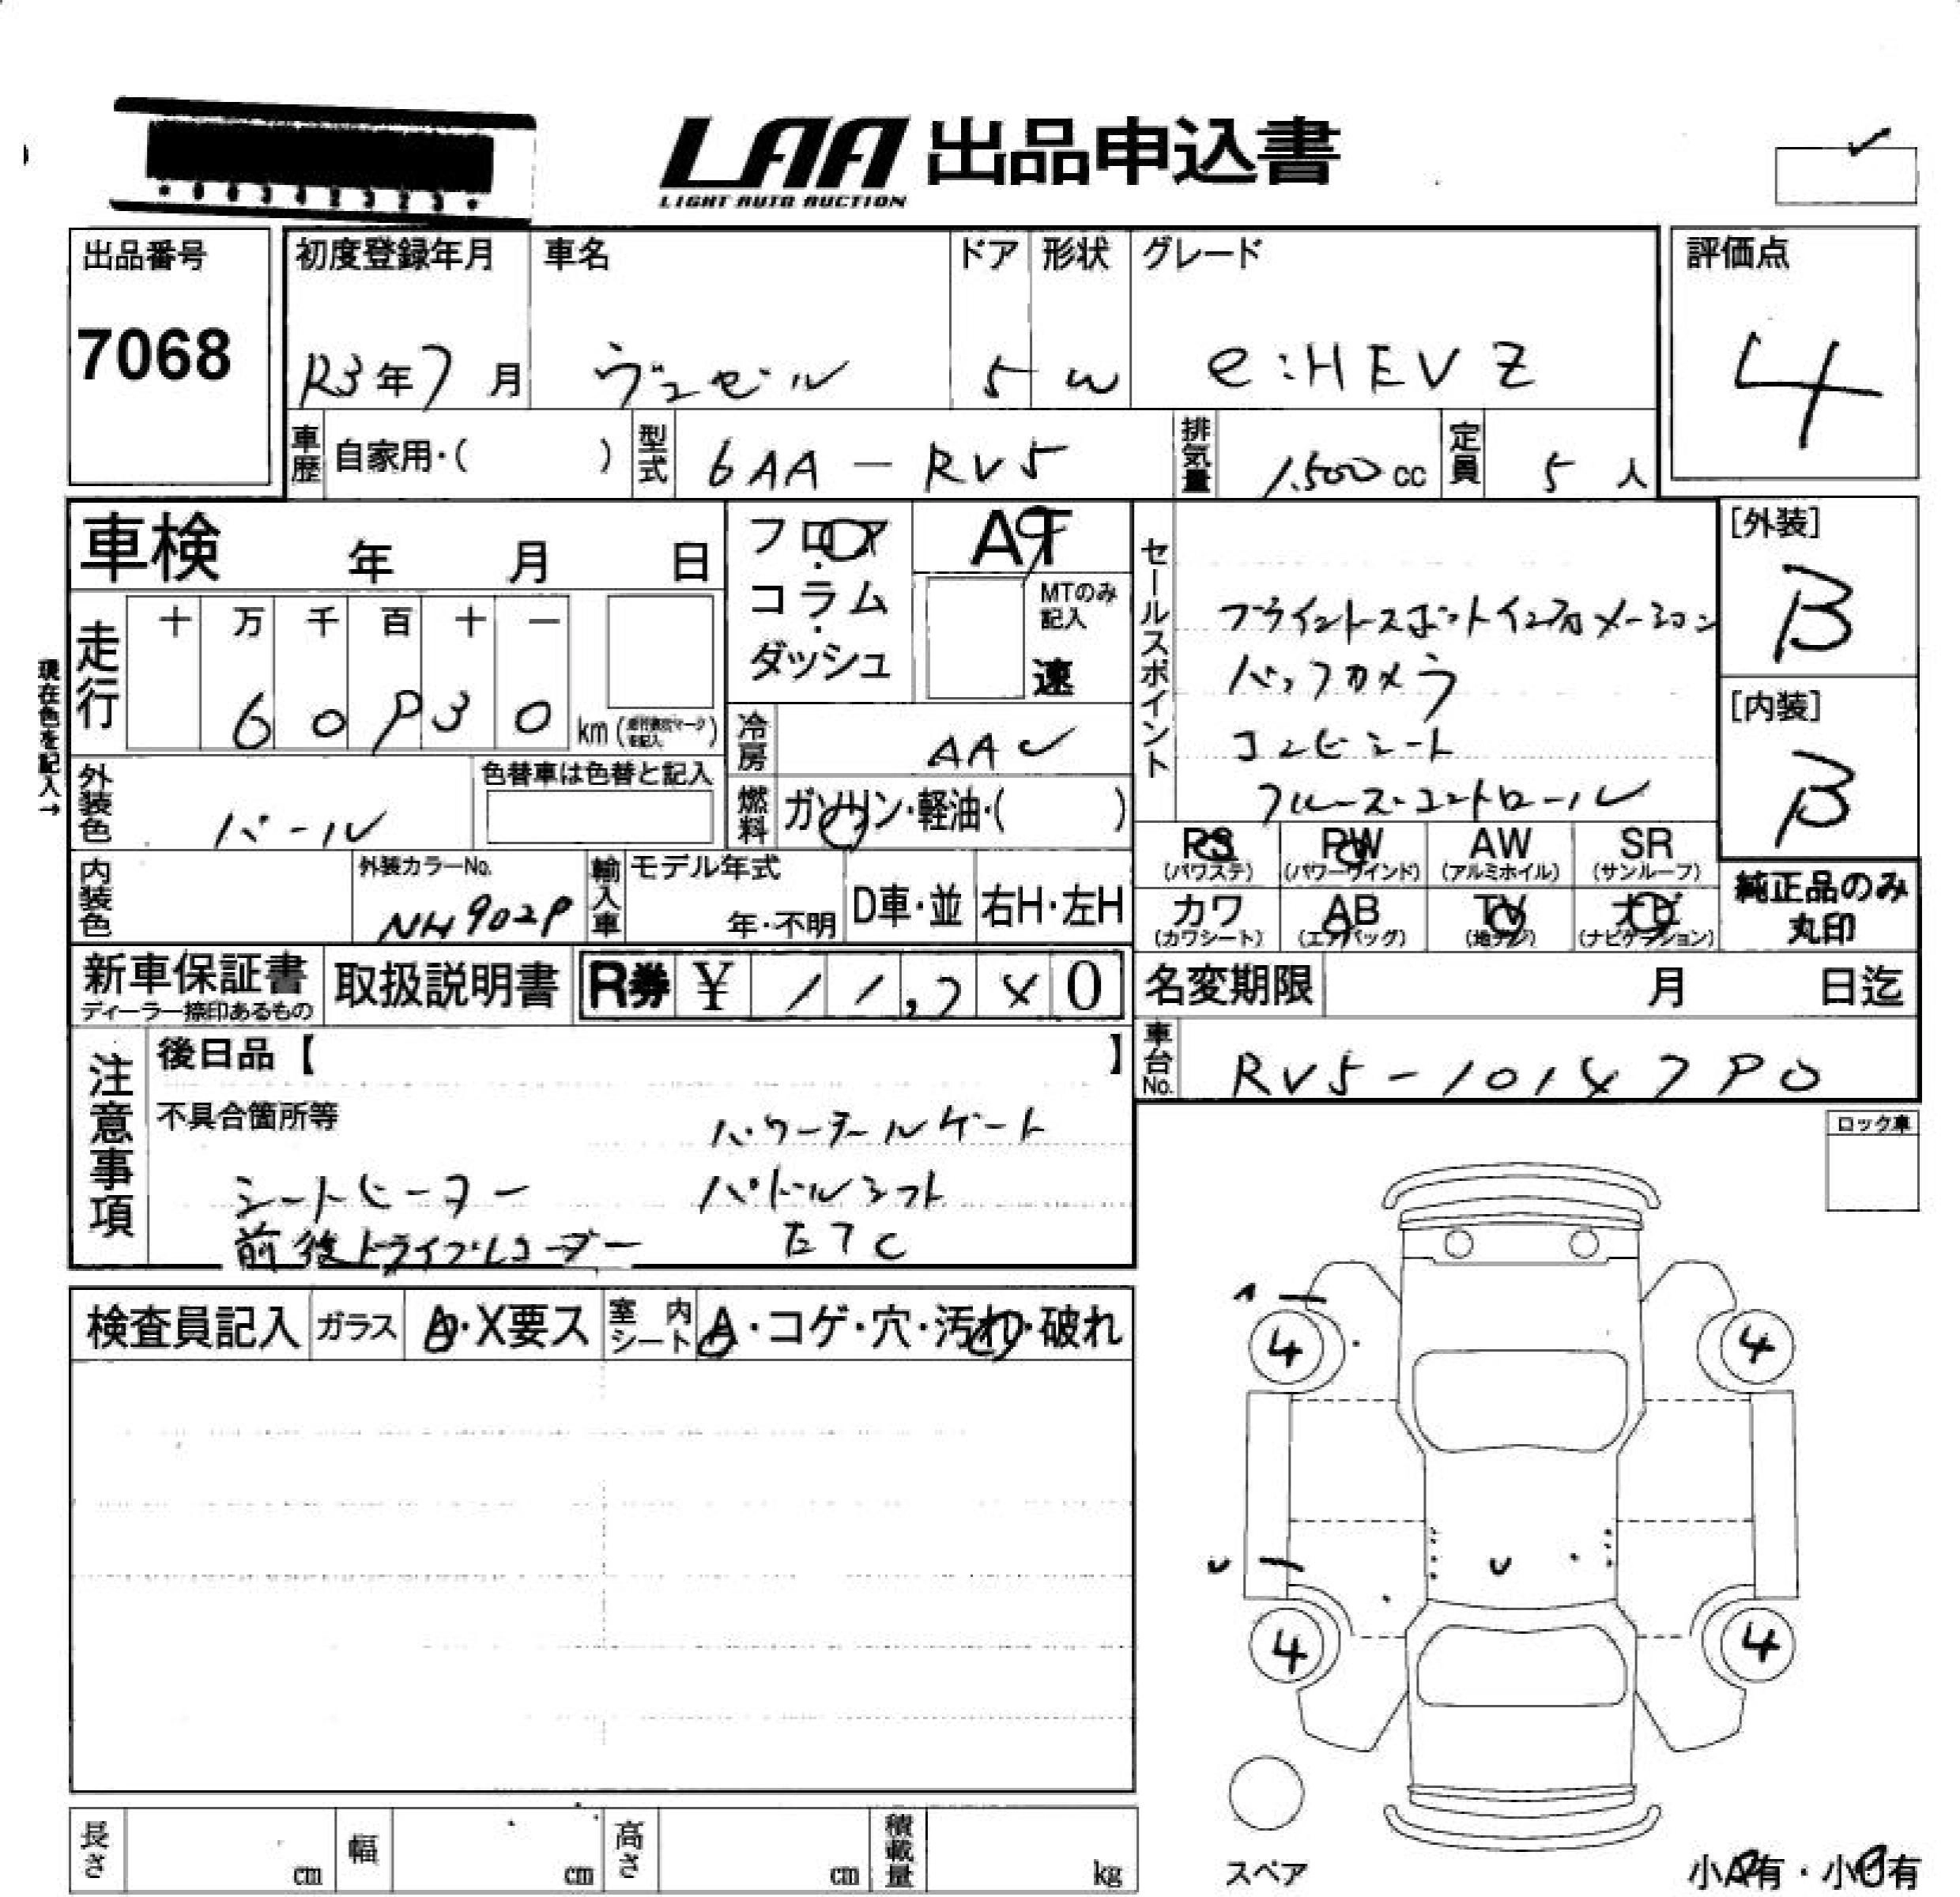 LAA 出品申込書
LIGHT AUTO AUCTION
出品番号
7068
初度登録年月
R3年7月
車名
ヴェゼル
ドア
5
形状
W
グレード
e:HEV Z
評価点
4
車歴 自家用・( )
型式 6AA-RV5
排気量 1,500cc
定員 5人
車検 年 月 日
フロア・コラム・ダッシュ
AT
MTのみ記入
速
セールスポイント
ブラインドスポットインフォメーション
バックカメラ
コンビシート
クルーズコントロール
[外装]
B
[内装]
B
現在色を記入→
走行 十 万 千 百 十 一
6 0 9 3 0 km
冷房 AAC
燃料 ガソリン・軽油・( )
外装色 パール
色替車は色替と記入
内装色
外装カラーNo.
NH902P
輸入車 モデル年式
年・不明
D車・並
右H・左H
PS (パワステ)
PW (パワーウインド)
AW (アルミホイル)
SR (サンルーフ)
カワ (カワシート)
AB (エアバッグ)
TV (地デジ)
ナビ (ナビゲーション)
純正品のみ丸印
新車保証書
ディーラー捺印あるもの
取扱説明書
R券 ¥
名変期限 月 日迄
車台No.
注意事項
後日品【 】
不具合箇所等
パワーテールゲート
シートヒーター パドルシフト
前後ドライブレコーダー ETC
ロック車
検査員記入
ガラス A・X要ス
室内シート A・コゲ・穴・汚れ・破れ
4
4
4
4
スペア
長さ cm
幅 cm
高さ cm
積載量 kg
小A有・小B有